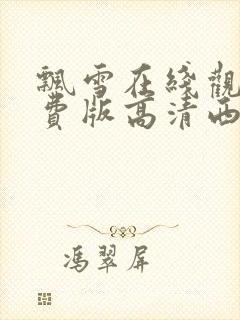 飄雪在綫觀
費版高清西
馮翠屏